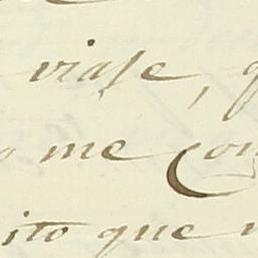 viaje,
me con
ito que